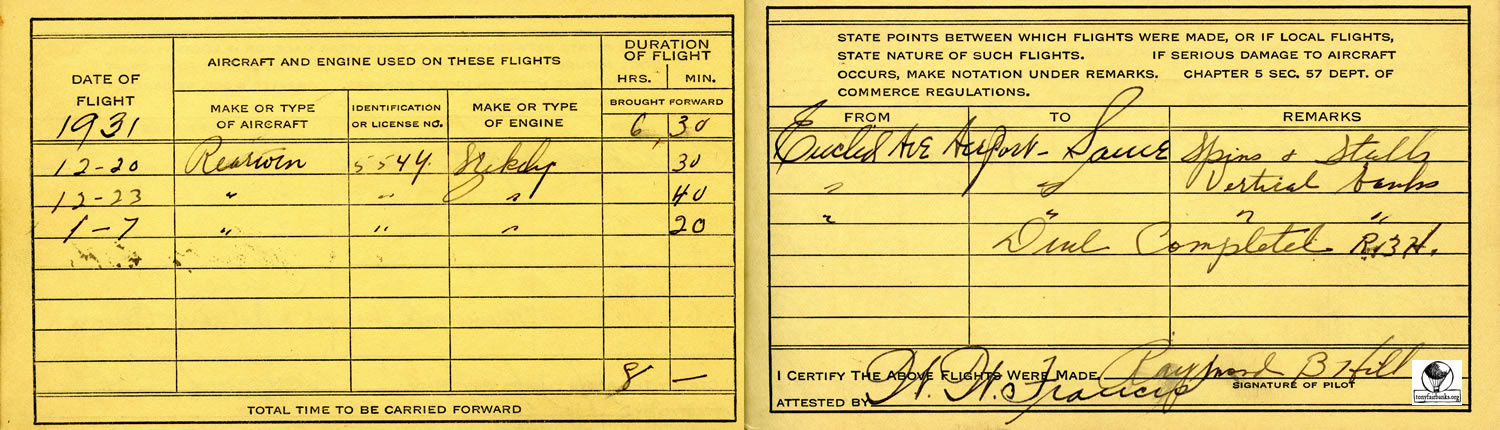 DURATION OF FLIGHT
DATE OF FLIGHT
AIRCRAFT AND ENGINE USED ON THESE FLIGHTS
HRS. MIN.
MAKE OR TYPE OF AIRCRAFT
IDENTIFICATION OR LICENSE NO.
MAKE OR TYPE OF ENGINE
BROUGHT FORWARD
1931 6 30
12-20 Rearwin 554Y Szekely 30
12-23 " " " 40
1-7 " " " 20
8 —
TOTAL TIME TO BE CARRIED FORWARD
STATE POINTS BETWEEN WHICH FLIGHTS WERE MADE, OR IF LOCAL FLIGHTS,
STATE NATURE OF SUCH FLIGHTS. IF SERIOUS DAMAGE TO AIRCRAFT
OCCURS, MAKE NOTATION UNDER REMARKS. CHAPTER 5 SEC. 57 DEPT. OF
COMMERCE REGULATIONS.
FROM TO REMARKS
Euclid Ave Airport - Same Spins & Stalls
" " Vertical banks
" " " "
Dual Completed R.B.H.
I CERTIFY THE ABOVE FLIGHTS WERE MADE Raymond B Hill
SIGNATURE OF PILOT
ATTESTED BY H. H. Francis
tonyfairbanks.org